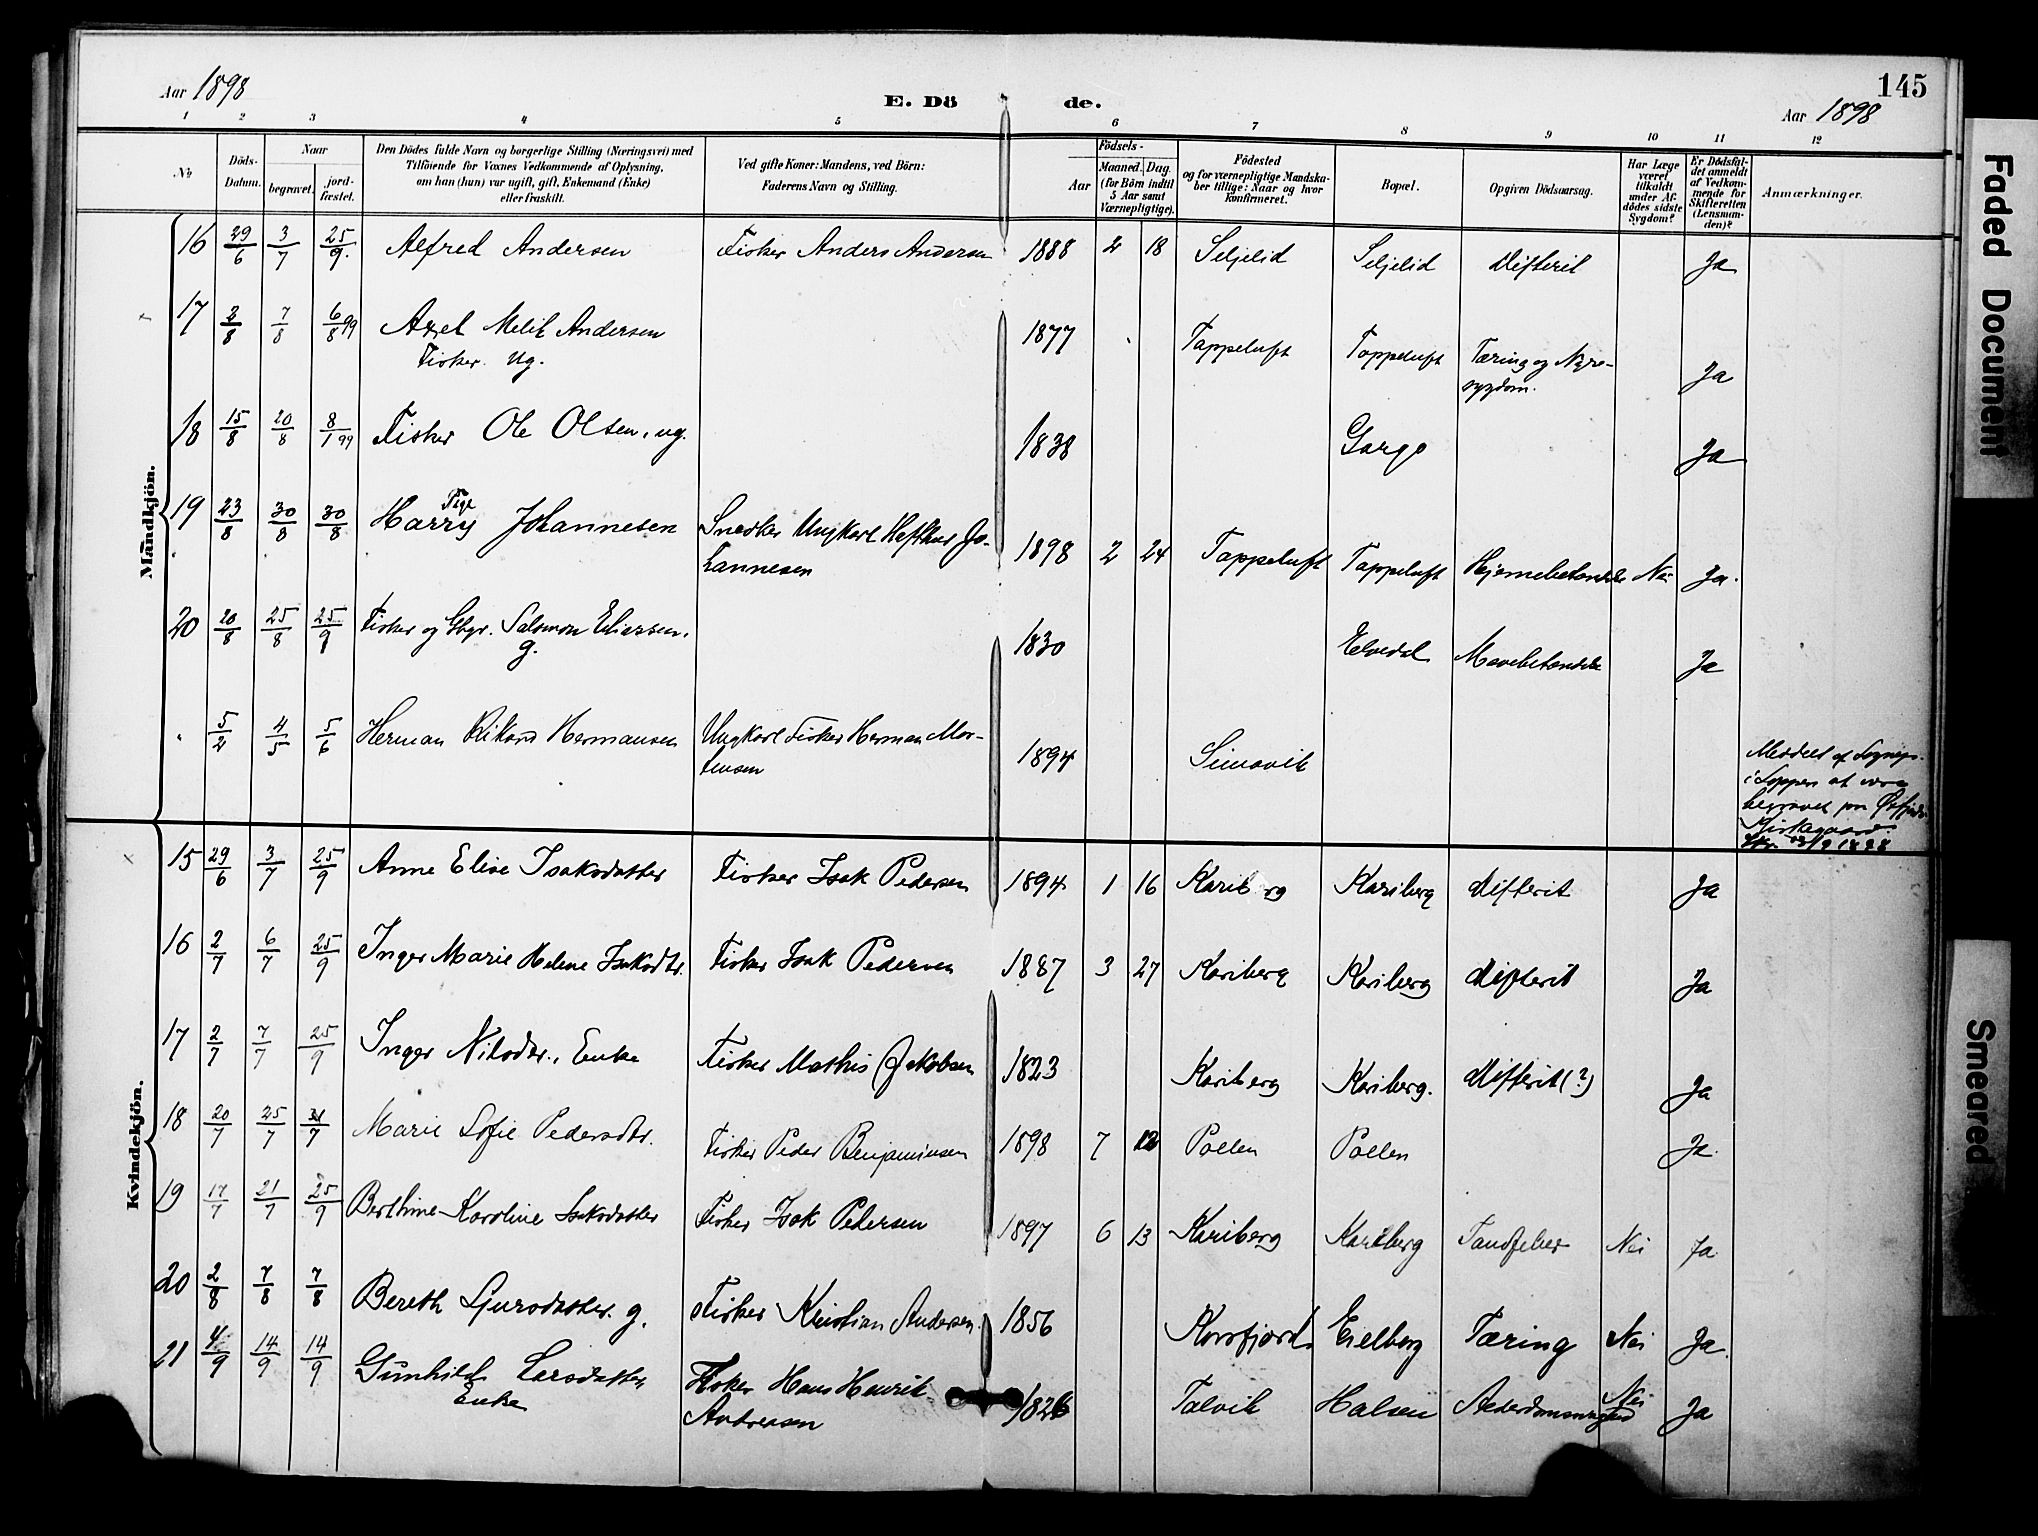 Aar 1898
E. Dö de.
145
Aar 1898
1 2 3 4 5 6 7 8 9 10 11 12
No
Döds-Datum.
Naar
begravet.
jord-fæstet.
Den Dödes fulde Navn og borgerlige Stilling (Næringsvei) med
Tilföiende for Voxnes Vedkommende af Oplysning,
om han (hun) var ugift, gift, Enkemand (Enke)
eller fraskilt.
Ved gifte Koner: Mandens, ved Börn:
Faderens Navn og Stilling.
Födsels-
Aar
Maaned. Dag
(for Börn indtil
5 Aar samt
Værnepligtige).
Födested
og for værnepligtige Mandska-
ber tillige: Naar og hvor
konfirmeret.
Bopæl.
Opgiven Dödsaarsag.
Har Læge
været
tilkaldt
under Af-
dödes sidste
Sygdom?
Er Dödsfal-
det anmeldt
af Vedkom-
mende for
Skifteretten
(Lensman-
den)?
Anmærkninger.
Mandkjön.
16 29/6 3/7 25/9. Alfred Andersen Fisker Anders Andersen 1888 2 18 Seljelid Seljelid Difterit Ja
17 2/8 7/8 6/8 99 Axel Melit Andersen 1877 Tappeluft Tappeluft Tæring og Nyre- Ja
Fisker. Ug. sygdom.
18 15/8 20/8 8/1 99 Fisker Ole Olsen, ug. 1838 Gargo Ja
19 23/8 30/8 30/8 Harry Johannesen Snedker Ungkarl Johannesen 1898 2 24 Tappeluft Tappeluft Hjernebetændelse Nei Ja.
20 20/8 25/8 25/9 Fisker og Gbgr. Salomon Eliassen. 1830 Elvedal Mavebetændelse Ja
g.
5/2 4/5 5/6 Herman Rikard Hermansen Ungkarl Fisker Herman Mor- 1894 Simavik
tensen
Meddelt af Sognep.
i Loppen at være
begravet paa
Kirkegaard.
Kvindekjön.
15 29/6 3/7 25/9 Anne Elise Isaksdatter Fisker Isak Pedersen 1894 1 16 Kariberg Kariberg Difterit Ja
16 2/7 6/7 25/9 Inger Marie Helene Isaksdtr. Fisker Isak Pedersen 1887 3 27 Kariberg Kariberg Difterit Ja
17 2/7 7/7 25/9 Inger Nilsdtr., Enke Fisker Mathis Jakobsen 1823 Kariberg Kariberg. Difterit (?) Ja
18 20/7 25/7 31/7 Marie Sofie Pedersdtr. Fisker Peder Benjaminsen 1898 7 12 Pollen Pollen Ja.
19 17/7 21/7 25/9 Berthine Karoline Isaksdatter Fisker Isak Pedersen 1897 6 13 Kariberg Kariberg Tandfeber Nei Ja
20 2/8 7/8 7/8 Bereth Sjursdatter. g. Fisker Kristian Andersen. 1856 Korsfjord Eielberg Tæring Nei Ja.
21 4/9 14/9 14/9 Gunhild Larsdatter, Fisker Hans Henrik 1826 Talvik Halsen Alderdomssvaghed Nei Ja
Enke Andreasen
Faded Document
Smeared